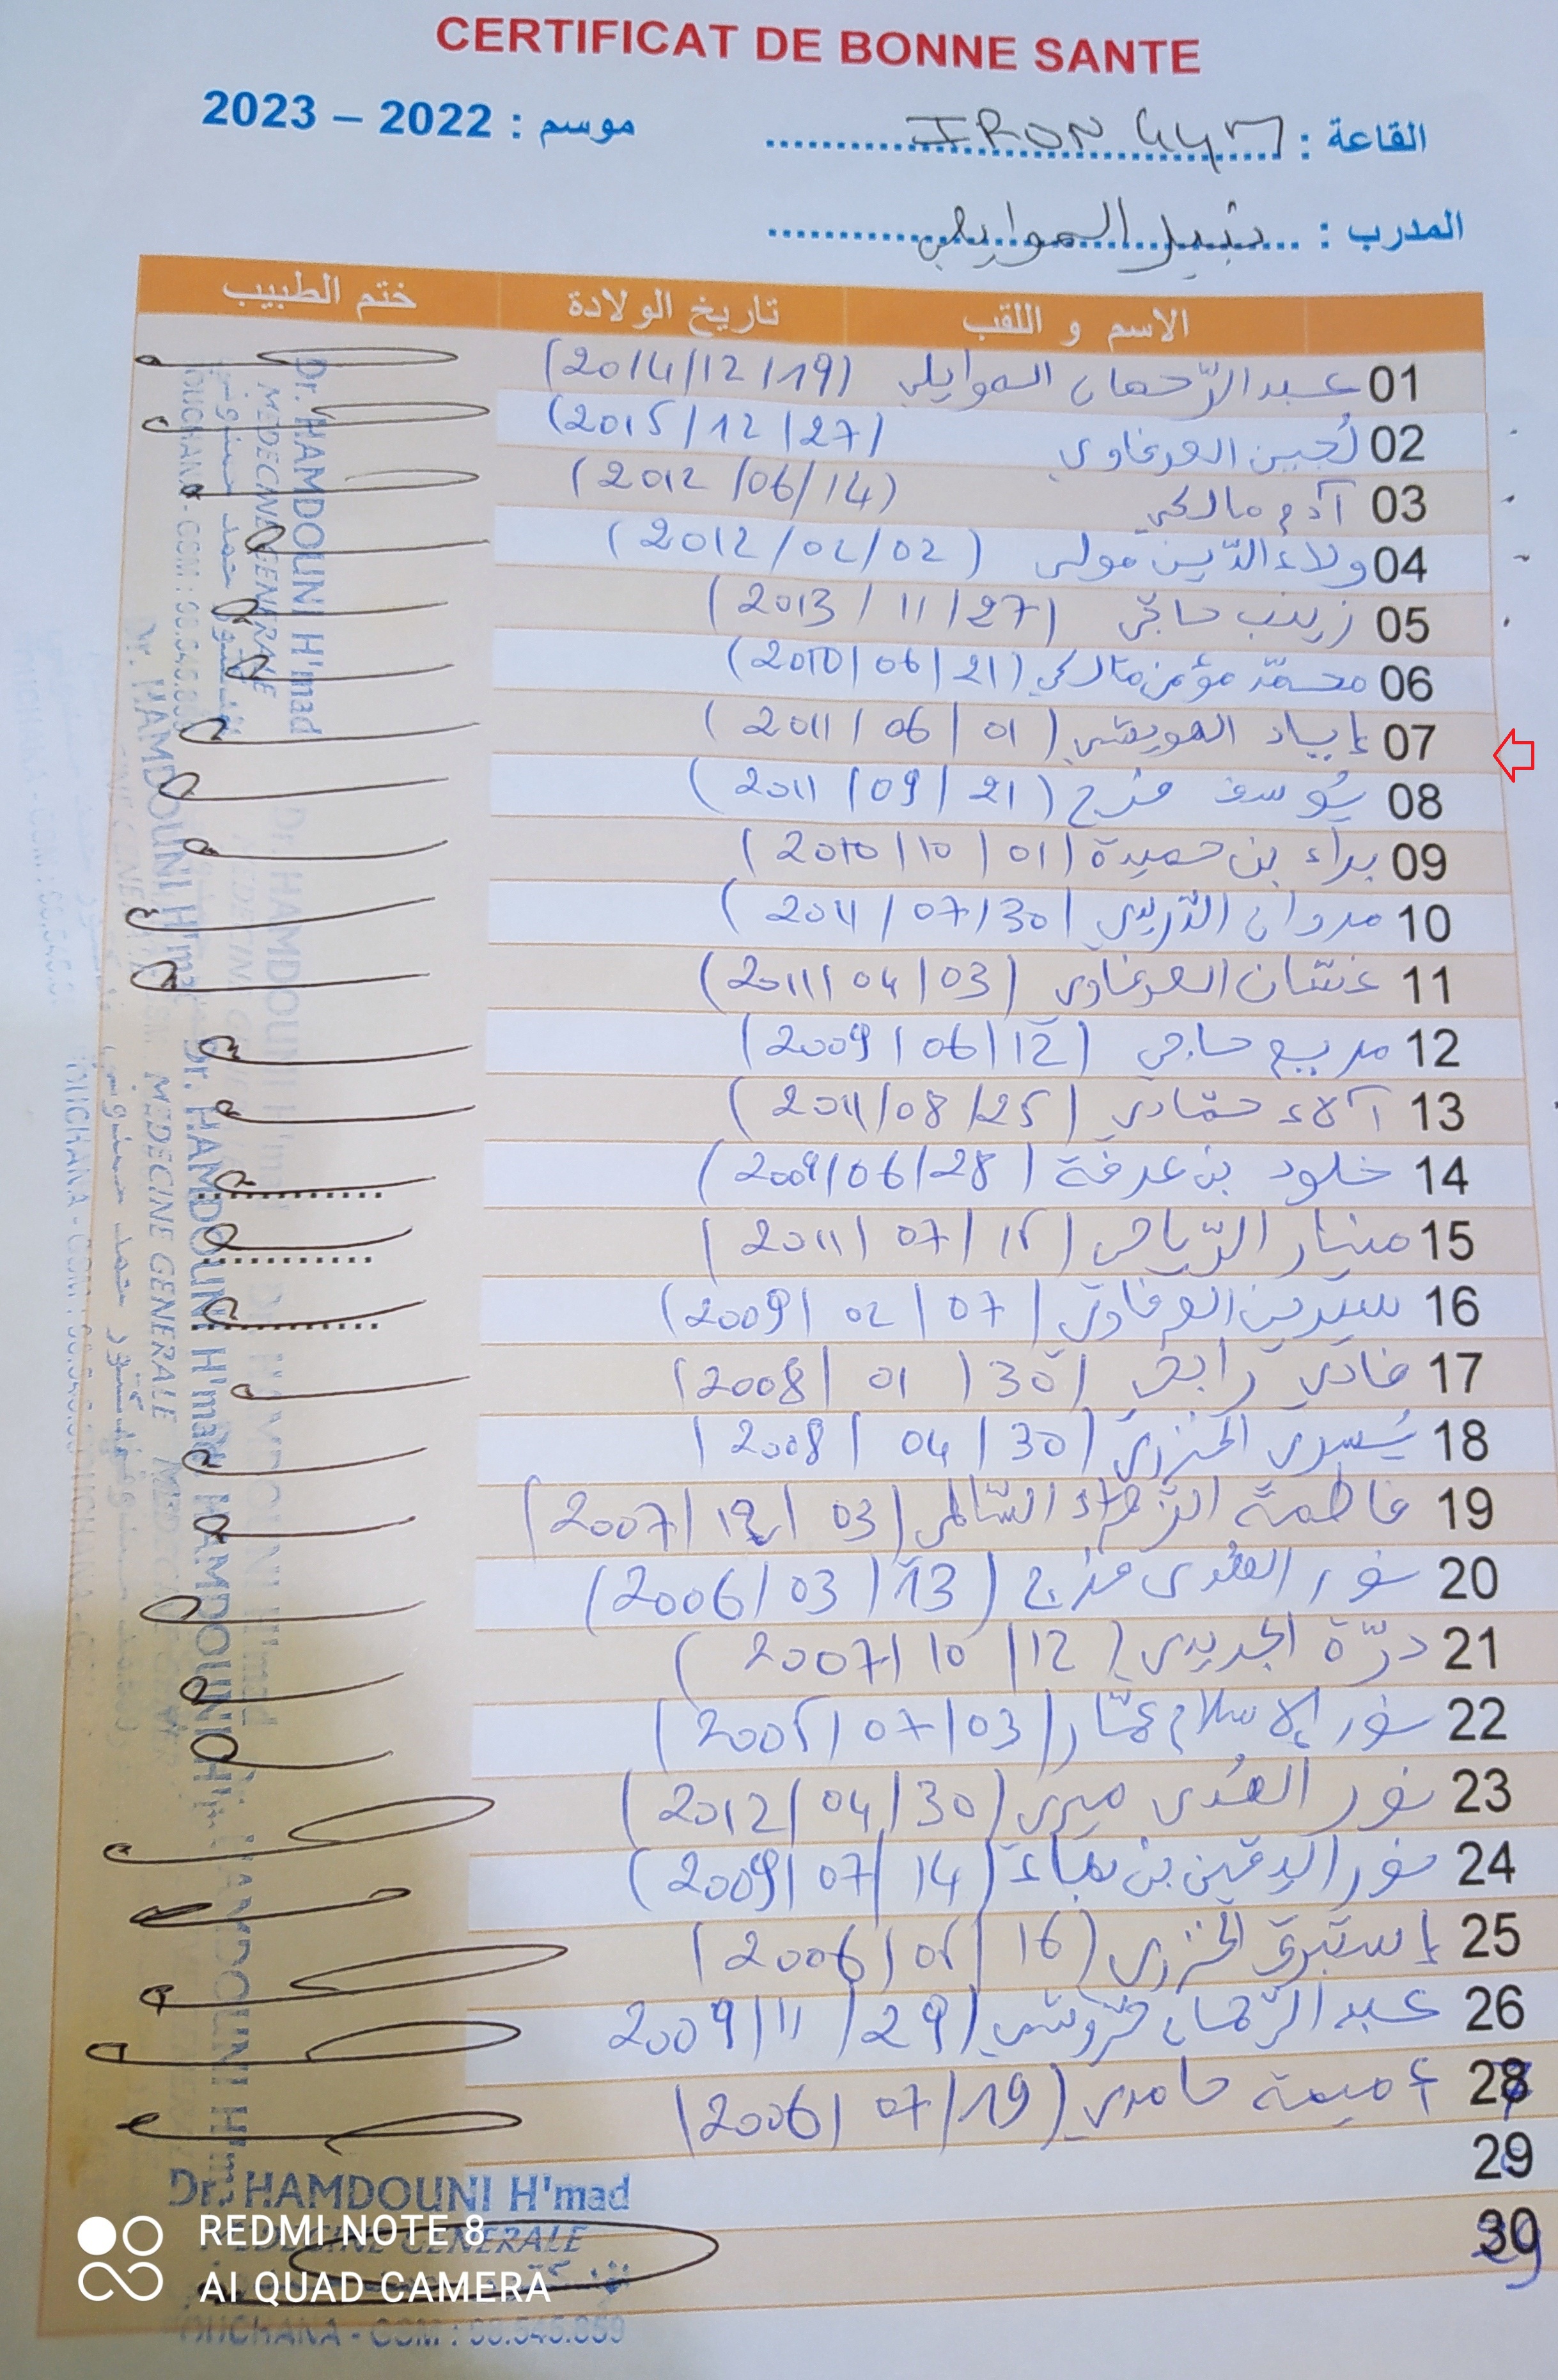 CERTIFICAT DE BONNE SANTE
القاعة : IRON GYM موسم : 2022 – 2023
المدرب : نبيل الهوايلي
الاسم و اللقب تاريخ الولادة ختم الطبيب
01 عبد الرّحمان الهوايلي (2014/12/19)
02 لُجين العرفاوي (2015/12/27)
03 آدم مالكي (2012/06/14)
04 ولاء الدّين مولى (2012/02/02)
05 زينب حاجّي (2013/11/27)
06 محمّد مؤمن مالكي (2010/06/21)
07 إياد الهويشي (2011/06/01)
08 يُوسف فرج (2011/09/21)
09 براء بن حميدة (2010/10/01)
10 مروان الدّريدي (2011/07/30)
11 غسّان العرفاوي (2011/04/03)
12 مريم حاجي (2009/06/12)
13 آلاء حمّادي (2011/08/25)
14 خلود بن عرفة (2009/06/28)
15 منار الرّياحي (2011/07/15)
16 سيرين العرفاوي (2009/02/07)
17 فادي رابحي (2008/01/30)
18 يُسرى الخزري (2008/04/30)
19 فاطمة الزّهراء السّالمي (2007/12/03)
20 نور الهُدى فرج (2006/03/13)
21 درّة الجديدي (2007/10/12)
22 نور الإسلام عمّار (2005/07/03)
23 نور الهُدى ميري (2012/04/30)
24 نور اليقين بن (2009/07/14)
25 إستبرق الخزري (2006/05/16)
26 عبد الرّحمان (2009/11/29
28 أميمة حامدي (2006/07/19)
29
30
Dr. HAMDOUNI H'mad
MEDECINE GENERALE
REDMI NOTE 8
AI QUAD CAMERA